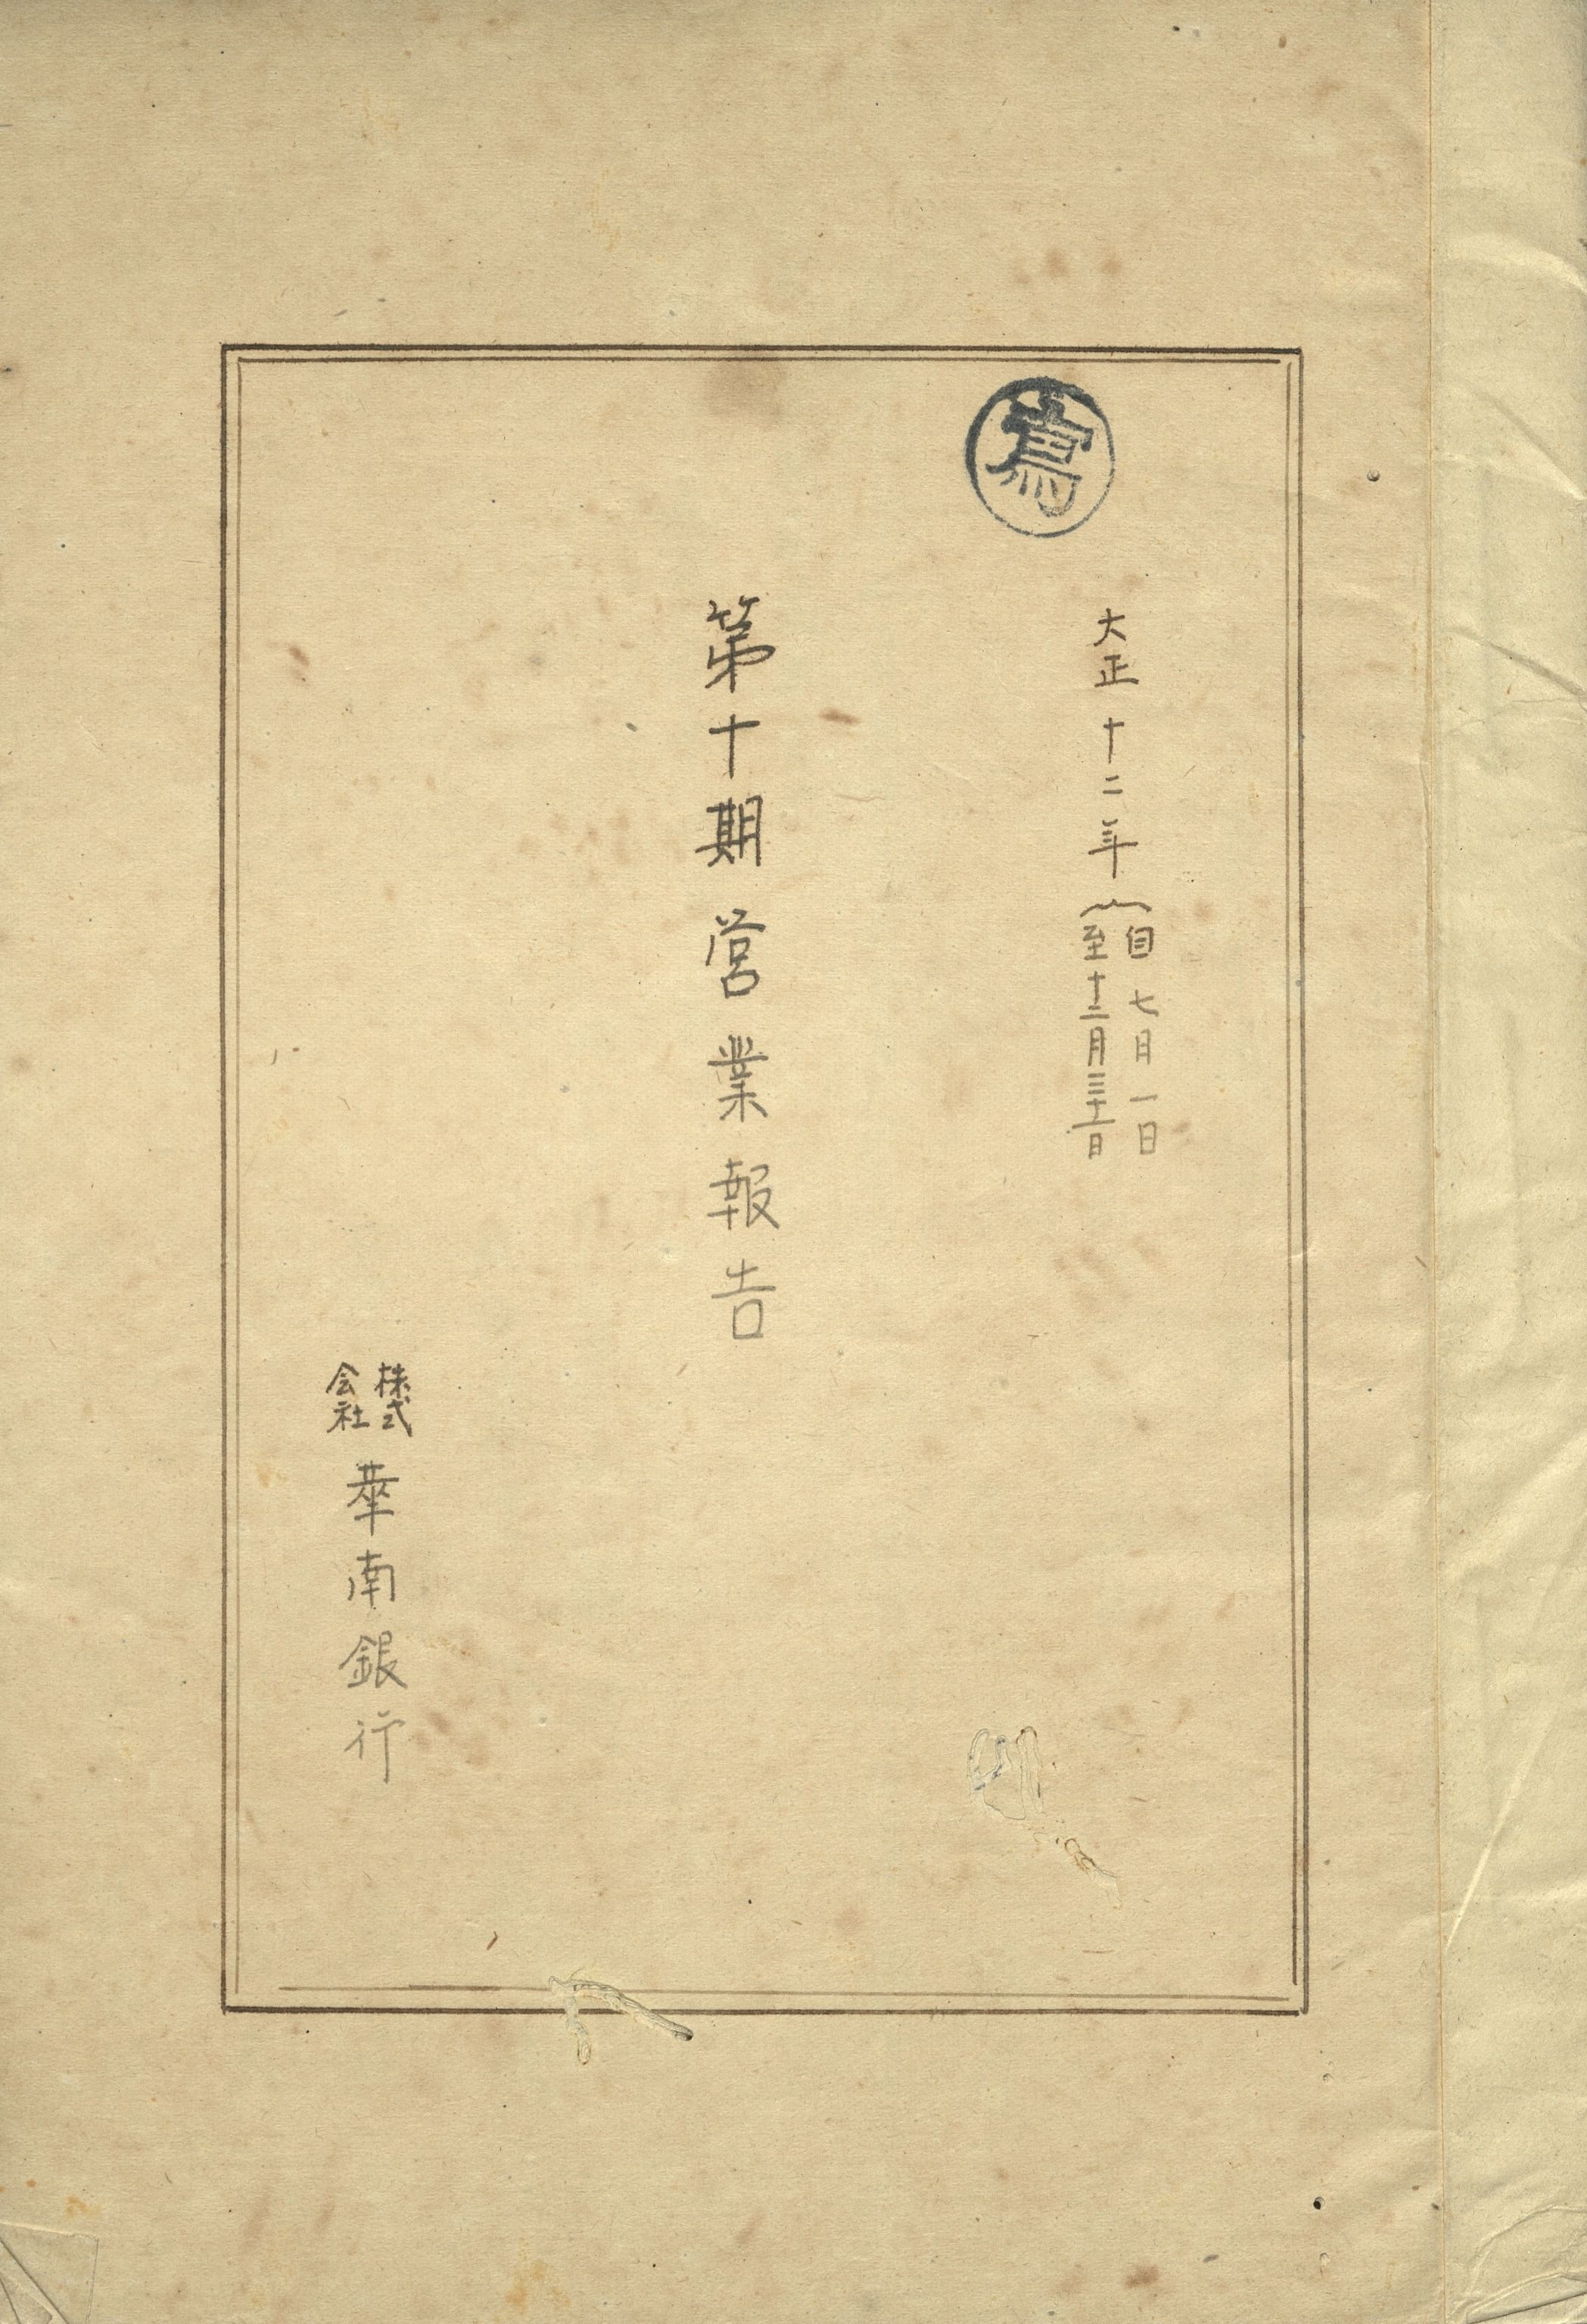 寫
大正十二年
自七月一日
至十二月三十一日
第十期営業報告
株式
会社
華南銀行